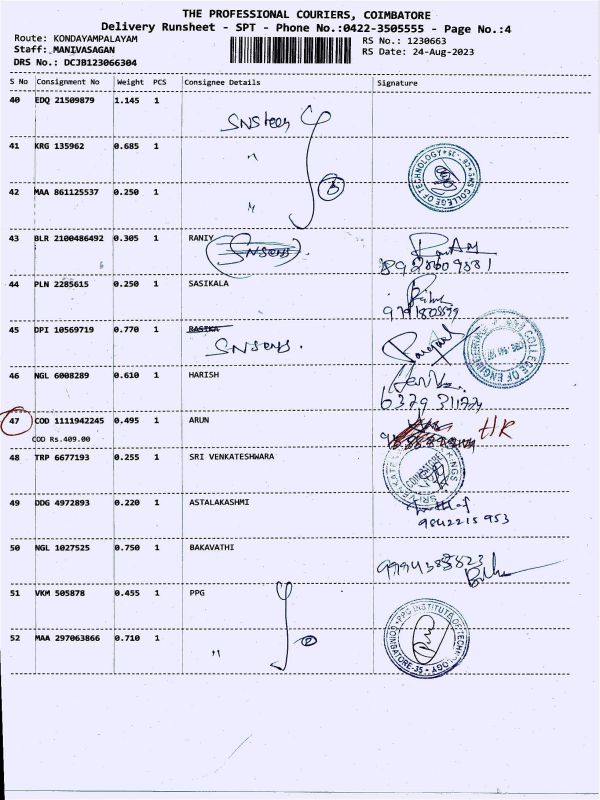 THE PROFESSIONAL COURIERS, COIMBATORE
Delivery Runsheet - SPT - Phone No.:0422-3505555 - Page No.:4
Route: KONDAYAMPALAYAM
RS No.: 1230663
Staff: MANIVASAGAN
RS Date: 24-Aug-2023
DRS No.: DCJB123066304
S No Consignment No Weight PCS Consignee Details Signature
40 EDQ 21509879 1.145 1 SNS tech
41 KRG 135962 0.685 1 "
SNS COLLEGE OF TECHNOLOGY
42 MAA 861125537 0.250 1 "
43 BLR 2100486492 0.305 1 RANIY
44 PLN 2285615 0.250 1 SASIKALA
45 DPI 10569719 0.770 1 RASIKA
COLLEGE OF ENGINEERING
46 NGL 6008289 0.610 1 HARISH
47 COD 1111942245 0.495 1 ARUN HR
COD Rs.409.00
48 TRP 6677193 0.255 1 SRI VENKATESHWARA
49 DDG 4972893 0.220 1 ASTALAKASHMI
9842215953
50 NGL 1027525 0.750 1 BAKAVATHI
51 VKM 505878 0.455 1 PPG
52 MAA 297063866 0.710 1 "
PPG INSTITUTE OF TECHNOLOGY
COIMBATORE-35